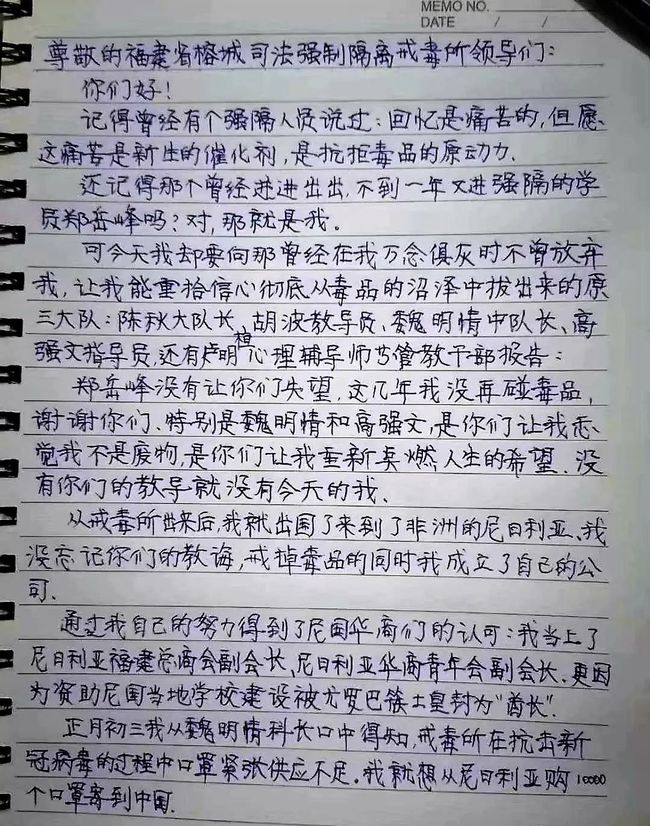 MEMO NO.
DATE / /
尊敬的福建省榕城司法强制隔离戒毒所领导们:
你们好!
记得曾经有个强隔人员说过:回忆是痛苦的,但愿
这痛苦是新生的催化剂,是抗拒毒品的原动力.
还记得那个曾经进进出出,不到一年又进强隔的学
员郑岳峰吗?对,那就是我。
可今天我却要向那曾经在我万念俱灰时不曾放弃
我,让我能重拾信心彻底从毒品的沼泽中拔出来的原
三大队:陈秋大队长、胡波教导员、魏明情中队长、高
强文指导员,还有卢明桓心理辅导师等管教干部报告:
郑岳峰没有让你们失望,这几年我没再碰毒品,
谢谢你们、特别是魏明情和高强文,是你们让我感
觉我不是废物,是你们让我重新点燃人生的希望.没
有你们的教导就没有今天的我、
从戒毒所出来后,我就出国了来到了非洲的尼日利亚、我
没忘记你们的教诲,戒掉毒品的同时我成立了自己的公
司.
通过我自己的努力得到了尼国华商们的认可:我当上了
尼日利亚福建总商会副会长、尼日利亚华商青年会副会长、更因
为资助尼国当地学校建设被尤罗巴族土皇封为"酋长".
正月初三我从魏明情科长口中得知,戒毒所在抗击新
冠病毒的过程中口罩紧张供应不足.我就想从尼日利亚购10000
个口罩寄到中国.